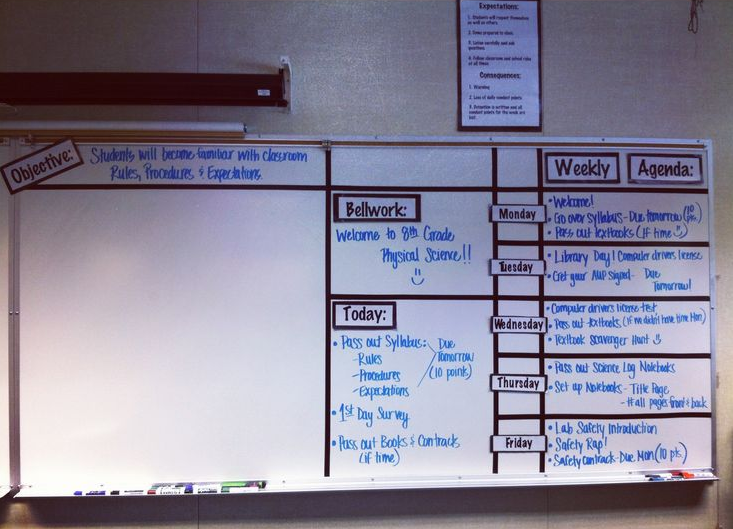 Expectations:
1. Students will respect themselves
as well as others.
2. Come prepared to class.
3. Listen carefully and ask
questions
4. Follow classroom and school rules
at all times.
Consequences:
1. Warning
2. Loss of daily conduct points.
3. Detention is written and all
conduct points for the week are
lost.
Objective:
Students will become familiar with classroom
Rules, Procedures & Expectations.
Bellwork:
Welcome to 8th Grade
Physical Science!!
Today:
• Pass out Syllabus:
- Rules
- Procedures
- Expectations
Due
Tomorrow
(10 points)
• 1st Day Survey
• Pass out Books & Contracts
(if time)
Weekly Agenda:
Monday
• Welcome!
• Go over Syllabus - Due tomorrow (10 pts.)
• Pass out Textbooks (if time)
Tuesday
• Library Day! Computer drivers license
• Get your AUP signed - Due
Tomorrow!
Wednesday
• Computer drivers license test
• Pass out textbooks (if we didn't have time Mon)
• Textbook Scavenger Hunt
Thursday
• Pass out Science Log Notebooks
• Set up Notebooks - Title Page
- # all pages front & back
Friday
• Lab Safety Introduction
• Safety Rap!
• Safety Contract - Due Mon (10 pts.)